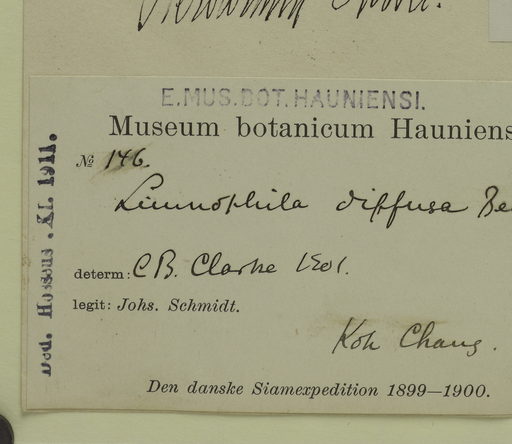 E.MUS.BOT.HAUNIENSI.
Museum botanicum Hauniens
№ 146.
Limnophila diffusa Be
determ: CB. Clarke 1801.
legit: Johs. Schmidt.
Koh Chang.
Den danske Siamexpedition 1899—1900.
Ded. Hosseus. XI. 1911.